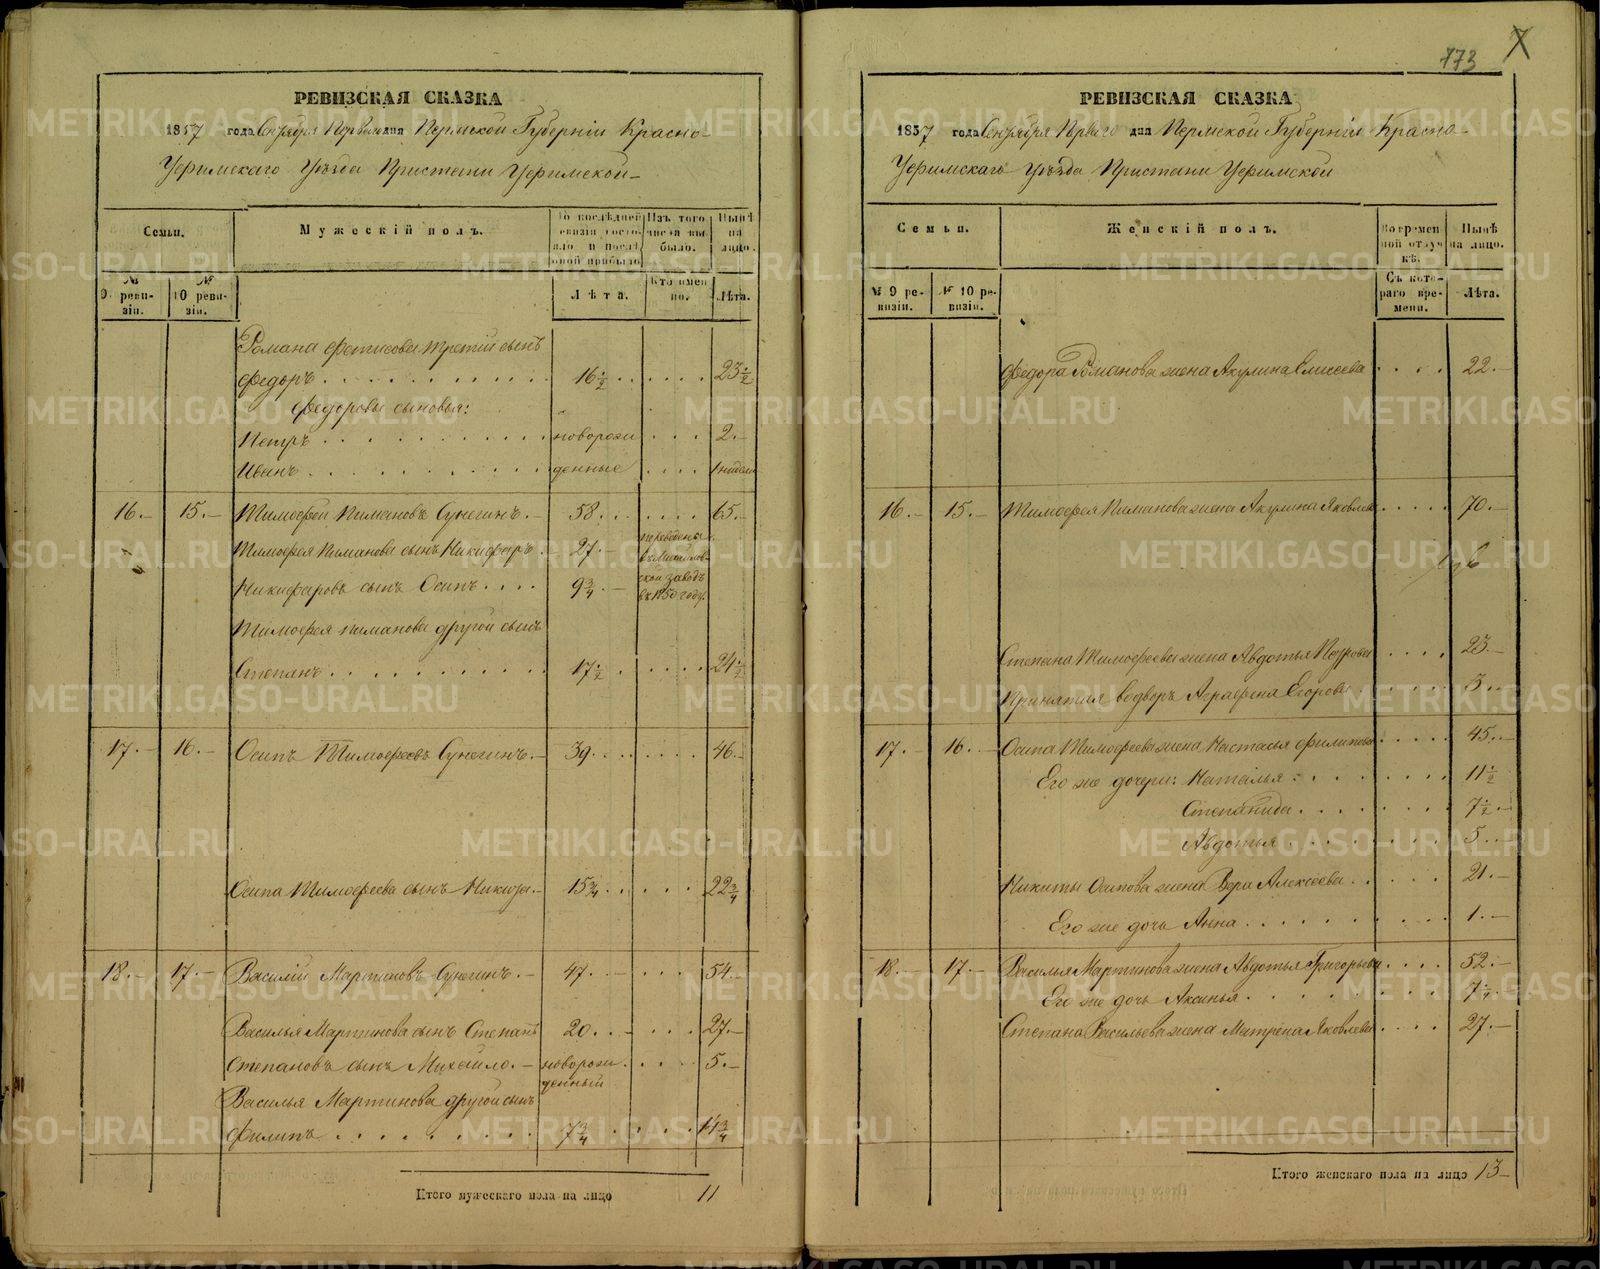 РЕВИЗСКАЯ СКАЗКА
1857 года Сентября Перваго дня Пермской Губерніи Красно-
Уфимскаго Уѣзда Пристани Уфимской
Семьи.
Мужескій полъ.
По послѣдней ревизіи состояло и послѣ оной прибыло
Изъ того числа выбыло.
Нынѣ на лицо.
№ 9 ревизіи.
№ 10 ревизіи.
Лѣта.
Кто именно.
Лѣта.
Романа Фетисова третій сынъ
Федоръ 16 1/2 23 1/2
Федоровы сыновья:
Петръ новорож 2.
Иванъ денные 1 недели
16. 15. Тимофей Пимановъ Сунегинъ. 58 65.
Тимофея Пиманова сынъ Никифоръ 27 переведены
въ
Никифоровъ сынъ Осипъ 9 3/4 ской заводъ
въ 1850 году.
Тимофея Пиманова другой сынъ
Степанъ 17 1/2 24 1/2
17. 16. Осипъ Тимофеевъ Сунегинъ. 39 46.
Осипа Тимофеева сынъ Никита. 15 3/4 22 3/4
18. 17. Василій Мартиновъ Сунегинъ. 47 54.
Василья Мартинова сынъ Степанъ 20 27.
Степановъ сынъ Михайло. новорож 5.
денный
Василья Мартинова другой сынъ
Филипъ 7 3/4 14 3/4
Итого мужескаго пола на лицо 11
773 7
РЕВИЗСКАЯ СКАЗКА
1857 года Сентября Перваго дня Пермской Губерніи Красно-
Уфимскаго Уѣзда Пристани Уфимской
Семьи.
Женскій полъ.
Во временной отлучкѣ.
Нынѣ на лицо.
№ 9 ревизіи.
№ 10 ревизіи.
Съ котораго времени.
Лѣта.
Федора Романова жена Акулина Елисеева 22.
16. 15. Тимофея Пиманова жена Акулина Яковлева 70.
Степана Тимофеева жена Авдотья Петрова 23.
Принятая водворъ Аграфена Егорова 3.
17. 16. Осипа Тимофеева жена Настасья Филипова 45.
Его же дочери: Наталья 11 1/2
Степанида 7 1/2
Авдотья 5
Никиты Осипова жена Вера Алексеева 21.
Его же дочь Анна 1.
18. 17. Василья Мартинова жена Авдотья Григорьева 52.
Его же дочь Аксинья
Степана Васильева жена Матрена Яковлева 27.
Итого женскаго пола на лицо 13
METRIKI.GASO-URAL.RU